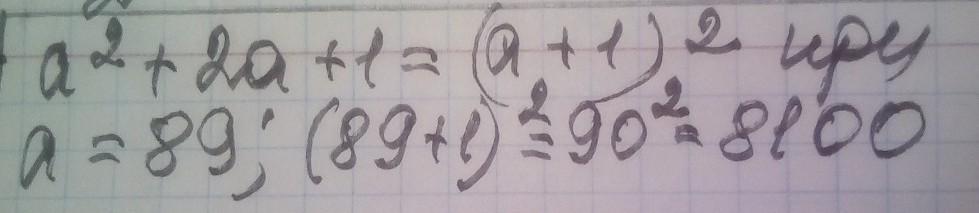 a² + 2a + 1 = (a + 1)² при
a = 89; (89+1)² = 90² = 8100